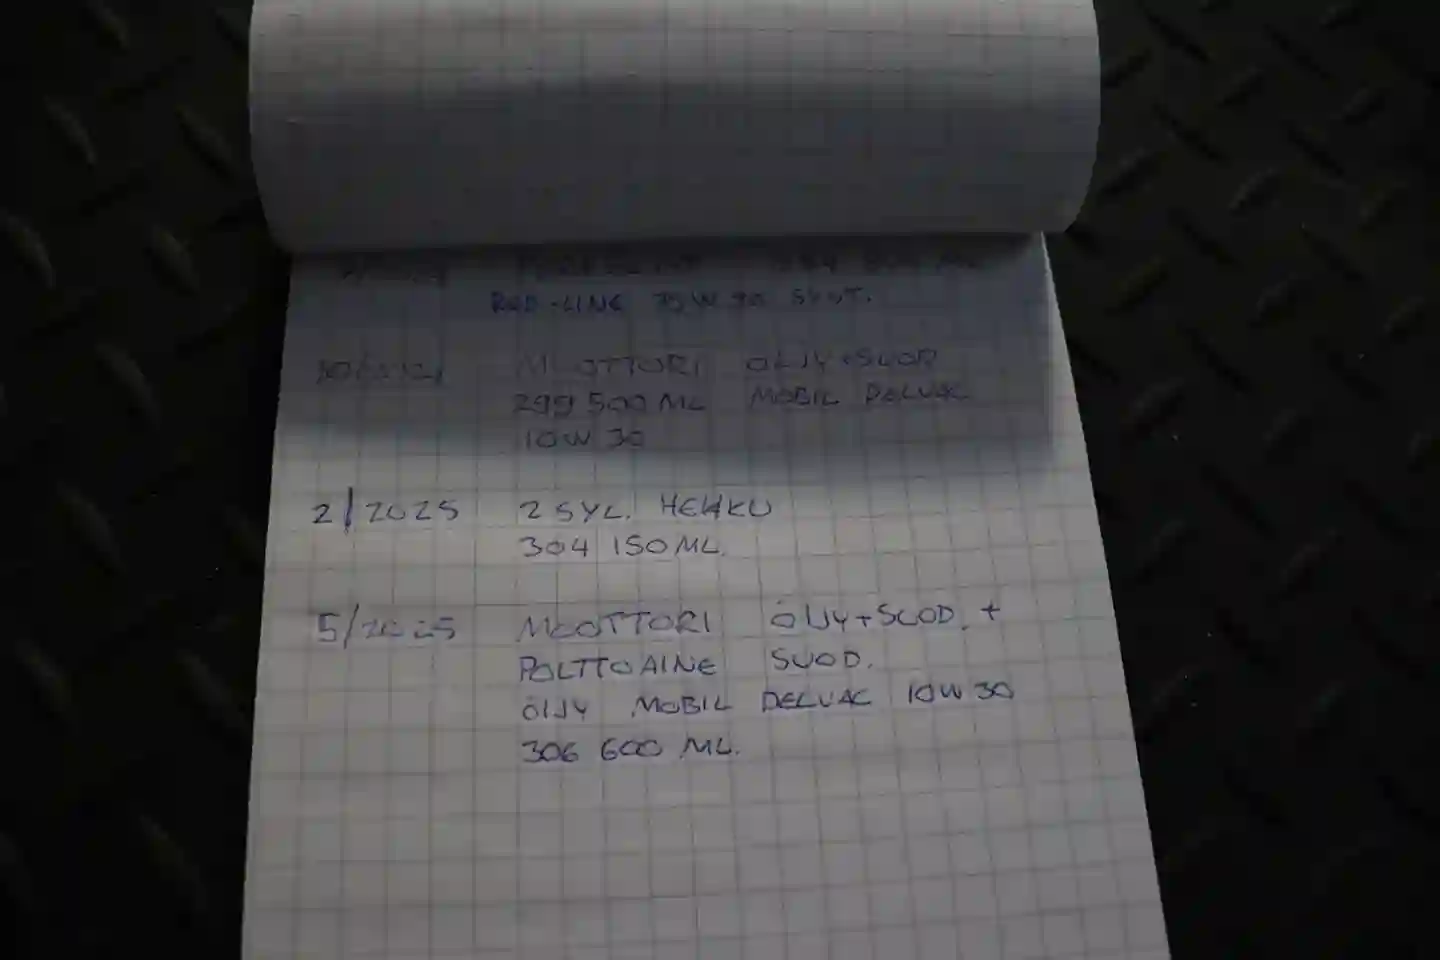 RED-LINE 75W90 SYNT.
MOOTTORI ÖLJY+SUOD
299 500 ML MOBIL DELVAC
10W 30
2/2025 2 SYL. HEHKU
304 150 ML.
5/2025 MOOTTORI ÖLJY+SUOD. +
POLTTOAINE SUOD.
ÖLJY MOBIL DELVAC 10W 30
306 600 ML.